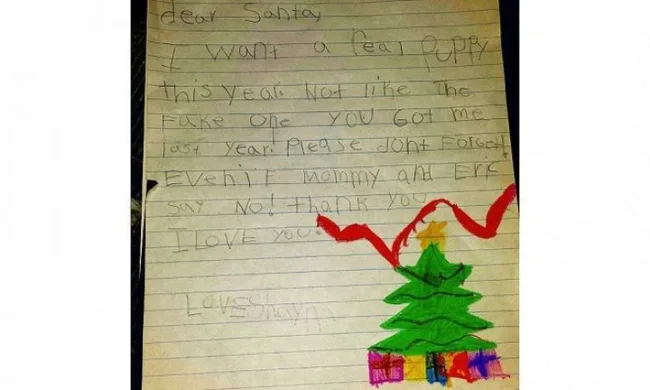 dear Santa,
I want a real puppy
this year. Not like The
Fake one you Got me
last year! Please dont Forget!
Even if Mommy and Eric
say No! thank you
I LOVE you!
Love